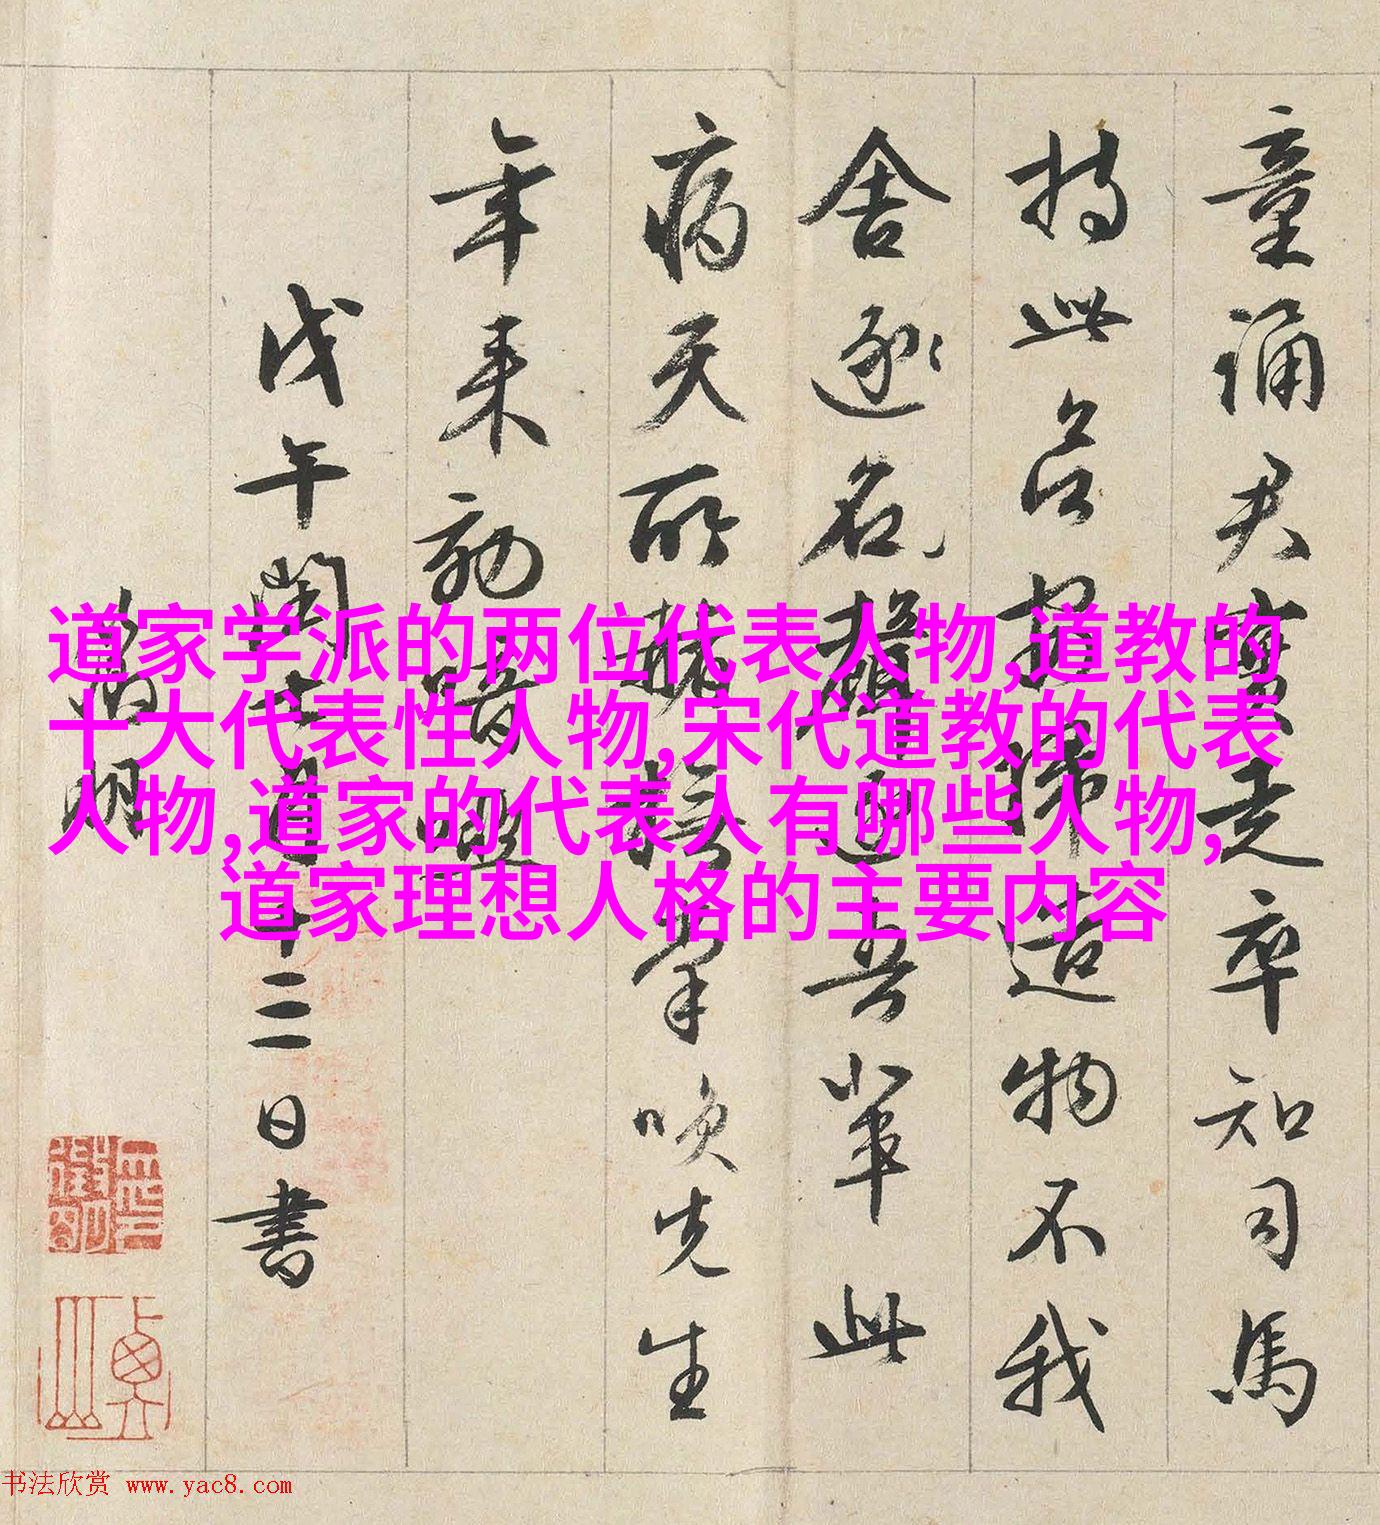 童誦君實走卒知司馬
持此歸造物不我
舍逐名聲吾輩此
病天所赭掌笑先生
年來効喑啞
戊午閏日書
明
道家学派的两位代表人物,道教的
十大代表性人物,宋代道教的代表
人物,道家的代表人有哪些人物,
道家理想人格的主要内容
书法欣赏 www.yac8.com